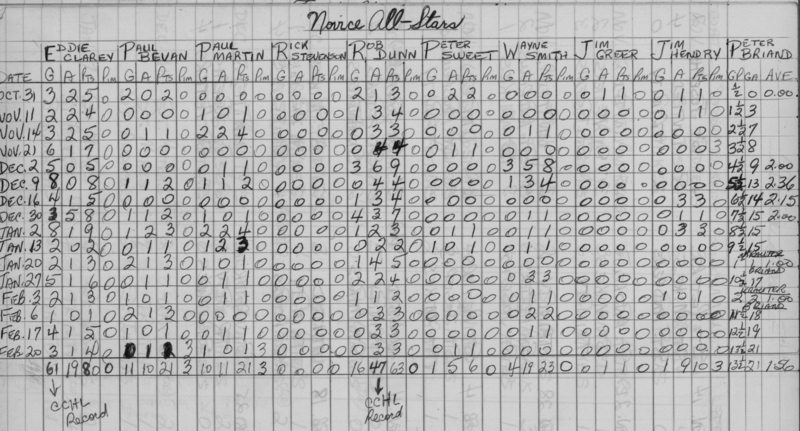 Novice All-Stars
EDDIE CLAREY PAUL BEVAN PAUL MARTIN RICK STEVENSON ROB DUNN PETER SWEET WAYNE SMITH JIM GREER JIM HENDRY PETER BRIAND
DATE G A Pts Pim G A Pts Pim G A Pts Pim G A Pts Pim G A Pts Pim G A Pts Pim G A Pts Pim G A Pts Pim G A Pts Pim GP GA AVE.
OCT. 31 3 2 5 0 2 0 2 0 0 0 0 0 0 0 0 0 2 1 3 0 0 2 2 0 0 0 0 0 0 1 1 0 0 1 1 0 ½ 0 0.00
NOV. 11 2 2 4 0 0 0 0 0 1 0 1 0 0 0 0 0 1 3 4 0 0 0 0 0 0 0 0 0 0 0 0 0 0 1 1 0 1½ 3
NOV. 14 3 2 5 0 0 1 1 0 2 2 4 0 0 0 0 0 0 3 3 0 0 0 0 0 0 1 1 0 0 0 0 0 0 0 0 0 2½ 7
NOV. 21 6 1 7 0 0 0 0 0 0 0 0 0 0 0 0 0 0 4 4 0 0 1 1 0 0 0 0 0 0 0 0 0 0 0 0 3 3½ 8
DEC. 2 5 0 5 0 0 0 0 0 0 1 1 0 0 0 0 0 3 6 9 0 0 0 0 0 3 5 8 0 0 0 0 0 0 0 0 0 4½ 9 2.00
DEC. 9 8 0 8 0 1 1 2 0 1 1 2 0 0 0 0 0 0 4 4 0 0 0 0 0 1 3 4 0 0 0 0 0 0 0 0 0 5½ 13 2.36
DEC. 16 4 1 5 0 0 0 0 0 0 0 0 0 0 0 0 0 1 3 4 0 0 0 0 0 0 0 0 0 0 0 0 0 0 3 3 0 6½ 14 2.15
DEC. 30 3 5 8 0 1 1 2 0 1 0 1 0 0 0 0 0 4 3 7 0 0 0 0 0 0 1 1 0 0 0 0 0 0 1 1 0 7½ 15 2.00
JAN. 2 8 1 9 0 1 2 3 0 2 2 4 0 0 0 0 0 1 2 3 0 0 1 1 0 0 1 1 0 0 0 0 0 0 3 3 0 8½ 15
JAN. 13 2 0 2 0 0 1 1 0 1 2 3 0 0 0 0 0 0 2 2 0 1 0 1 0 0 1 1 0 0 0 0 0 0 0 0 0 9½ 15
JAN. 20 2 1 3 0 2 1 3 0 1 0 1 0 0 0 0 0 1 4 5 0 0 0 0 0 0 0 0 0 0 0 0 0 0 0 0 0 1 1 1.00
BRIAND
JAN. 27 5 1 6 0 0 1 1 0 0 1 1 0 0 0 0 0 2 2 4 0 0 0 0 0 0 3 3 0 0 0 0 0 0 0 0 0 10½ 17
FEB. 3 2 1 3 0 1 0 1 0 0 1 1 0 0 0 0 0 1 1 2 0 0 0 0 0 0 1 1 0 0 0 0 0 1 0 1 0 2 2 1.00
BRIAND
FEB. 6 1 0 1 0 2 1 3 0 0 0 0 0 0 0 0 0 0 3 3 0 0 0 0 0 0 2 2 0 0 0 0 0 0 0 0 0 11½ 18
FEB. 17 4 1 5 0 1 0 1 0 0 1 1 0 0 0 0 0 0 3 3 0 0 0 0 0 0 1 1 0 0 0 0 0 0 0 0 0 12½ 19
FEB. 20 3 1 4 0 0 1 1 3 1 0 1 3 0 0 0 0 0 3 3 0 0 1 1 0 0 1 1 0 0 0 0 0 0 0 0 0 13½ 21
61 19 80 0 11 10 21 3 10 11 21 3 0 0 0 0 16 47 63 0 1 5 6 0 4 19 23 0 0 1 1 0 1 9 10 3 13½ 21 1.56
CCHL Record CCHL Record